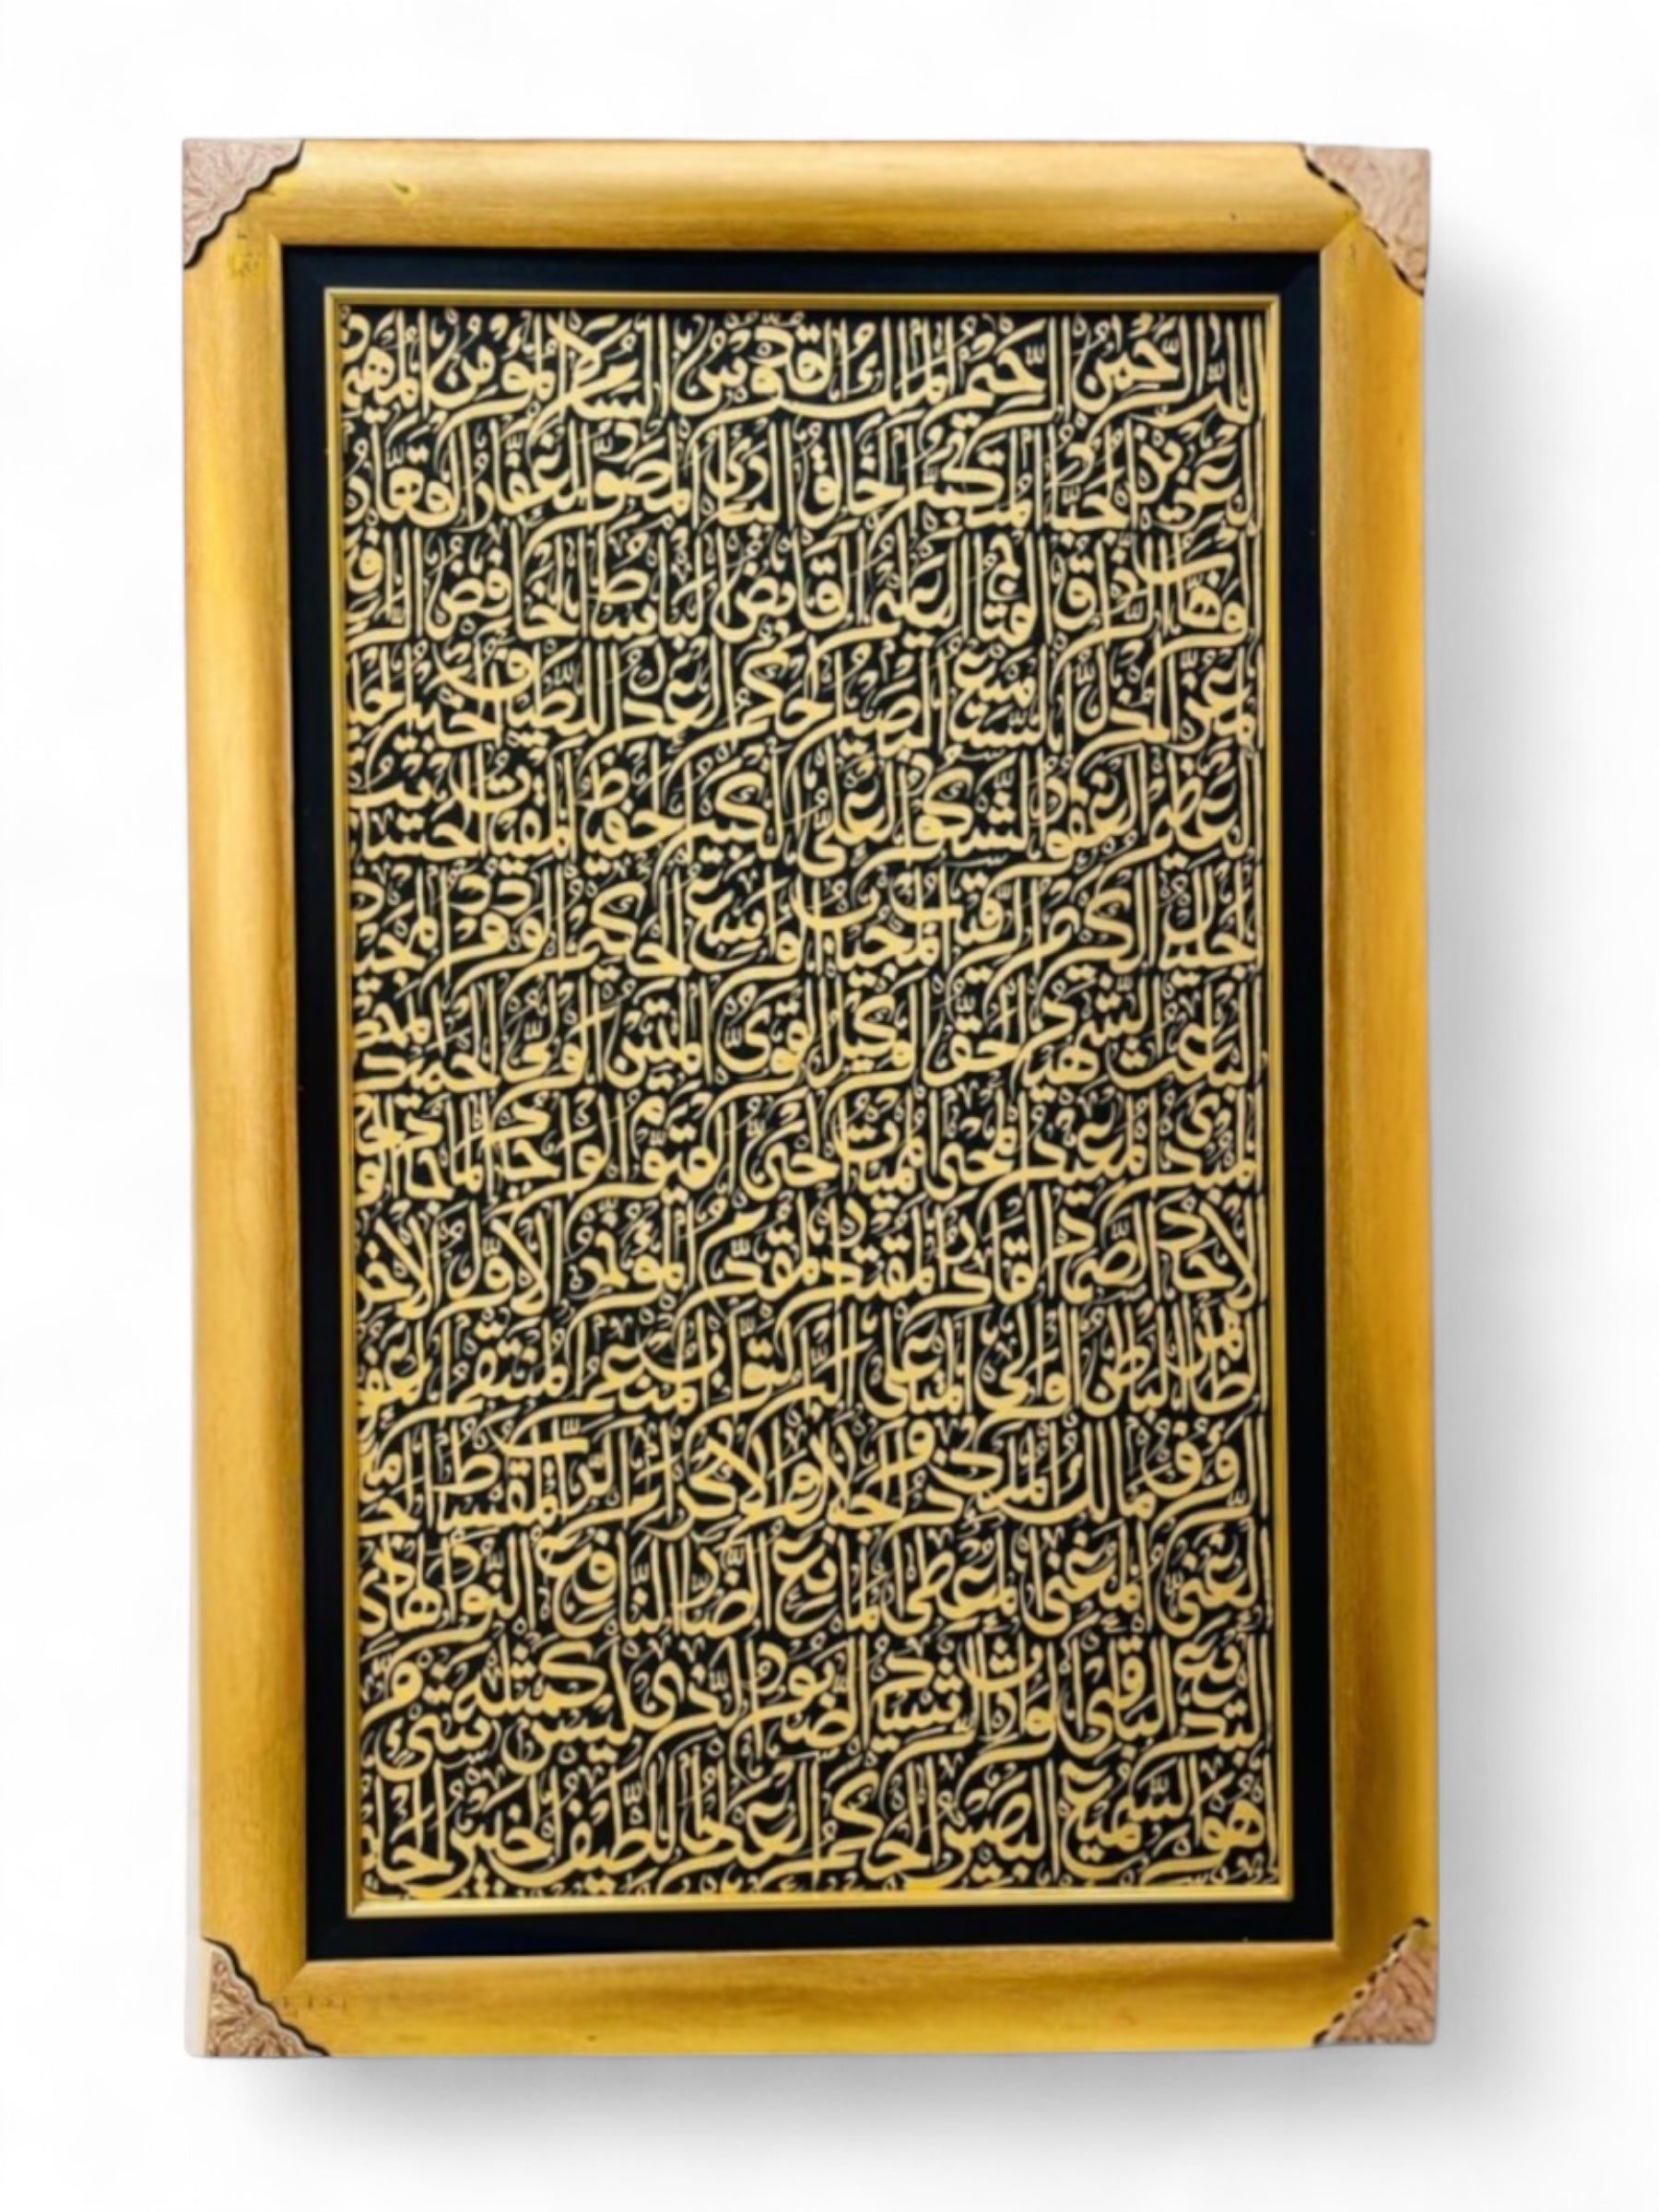 الله الرحمن الرحيم الملك القدوس السلام المؤمن المهيمن
العزيز الجبار المتكبر الخالق البارئ المصور الغفار القهار
الوهاب الرزاق الفتاح العليم القابض الباسط الخافض الرافع
المعز المذل السميع البصير الحكم العدل اللطيف الخبير
العظيم الغفور الشكور العلي الكبير الحفيظ المقيت الحسيب
الجليل الكريم الرقيب المجيب الواسع الحكيم الودود المجيد
الباعث الشهيد الحق الوكيل القوي المتين الولي الحميد
المبدئ المعيد المحيي المميت الحي القيوم الواجد الماجد
الاحد الصمد القادر المقتدر المقدم المؤخر الاول الاخر
الظاهر الباطن الوالي المتعالي البر التواب المنعم المنتقم العفو
الرؤوف مالك الملك ذو الجلال والاكرام الرب المقسط
الغني المغني المعطي المانع الضار النافع النور الهادي
البديع الباقي الوارث الرشيد الصبور الذي ليس كمثله شيء
وهو السميع البصير الحكم العدل اللطيف الخبير